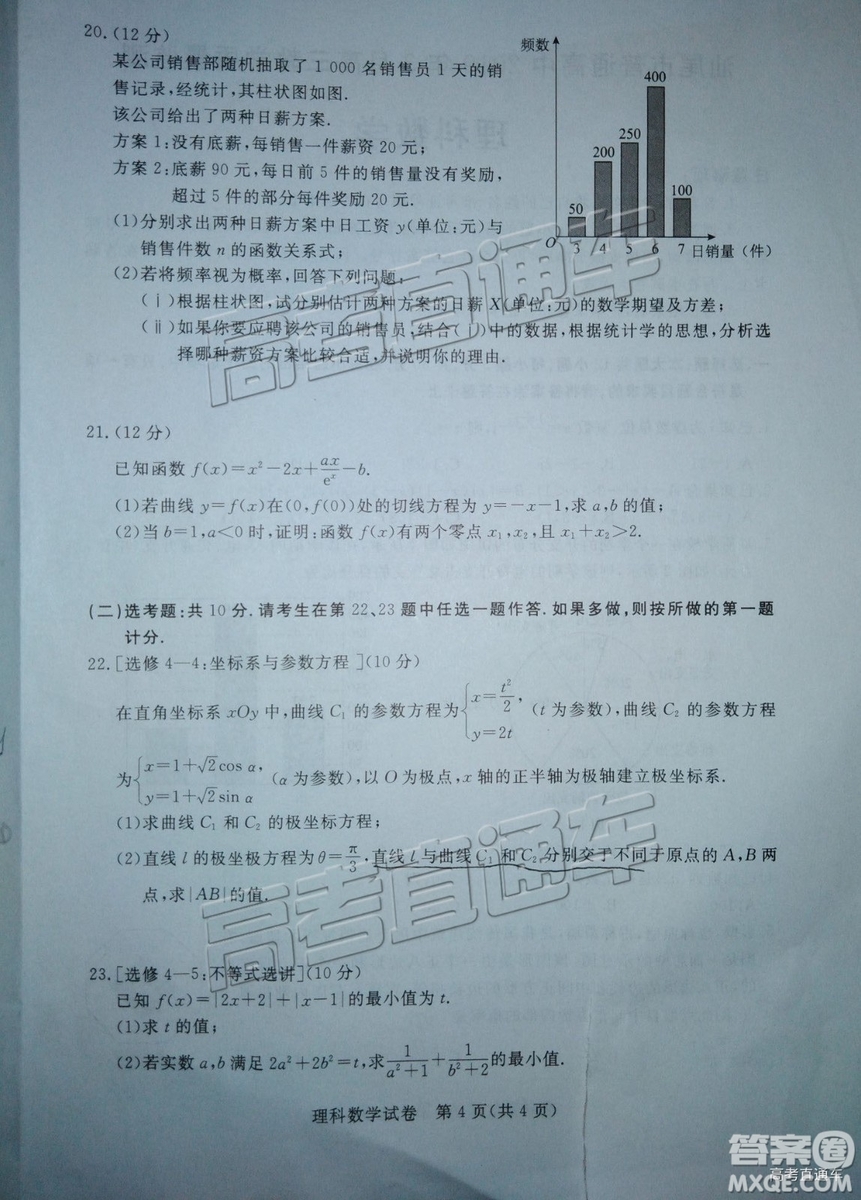 20.(12分)
某公司销售部随机抽取了1 000名销售员1天的销
售记录,经统计,其柱状图如图.
该公司给出了两种日薪方案.
方案1:没有底薪,每销售一件薪资20元;
方案2:底薪90元,每日前5件的销售量没有奖励,
超过5件的部分每件奖励20元.
(1)分别求出两种日薪方案中日工资y(单位:元)与
销售件数n的函数关系式;
频数
400
250
200
100
50
O 3 4 5 6 7 日销量(件)
(2)若将频率视为概率,回答下列问题:
(ⅰ)根据柱状图,试分别估计两种方案的日薪X(单位:元)的数学期望及方差;
(ⅱ)如果你要应聘该公司的销售员,结合(ⅰ)中的数据,根据统计学的思想,分析选
择哪种薪资方案比较合适,并说明你的理由.
21.(12分)
已知函数f(x)=x²-2x+ax/eˣ-b.
(1)若曲线y=f(x)在(0,f(0))处的切线方程为y=-x-1,求a,b的值;
(2)当b=1,a<0时,证明:函数f(x)有两个零点x₁,x₂,且x₁+x₂>2.
(二)选考题:共10分.请考生在第22、23题中任选一题作答.如果多做,则按所做的第一题
计分.
22.[选修4—4:坐标系与参数方程](10分)
在直角坐标系xOy中,曲线C₁的参数方程为{x=t²/2, y=2t (t为参数),曲线C₂的参数方程
为{x=1+√2cos α, y=1+√2sin α (α为参数),以O为极点,x轴的正半轴为极轴建立极坐标系.
(1)求曲线C₁和C₂的极坐标方程;
(2)直线l的极坐极方程为θ=π/3,直线l与曲线C₁和C₂分别交于不同于原点的A,B两
点,求|AB|的值.
23.[选修4—5:不等式选讲](10分)
已知f(x)=|2x+2|+|x-1|的最小值为t.
(1)求t的值;
(2)若实数a,b满足2a²+2b²=t,求1/(a²+1)+1/(b²+2)的最小值.
理科数学试卷 第4页(共4页)
高考直通车
高考直通车
答案圈
MXQE.COM
高考直通车